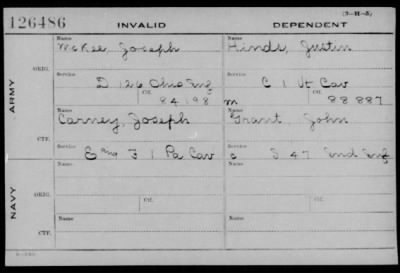 (3-H-5)
126486 INVALID DEPENDENT
Name Name
McKee, Joseph Hinds, Justin
ARMY
ORIG.
Service Service
D 126 Ohio Inf C 1 Vt Cav
Ctf. Ctf.
84198 m 88887
Name Name
Carney, Joseph Grant, John
CTF.
Service Service
E and F 1 Pa Cav c S 47 Ind Inf
NAVY
Name Name
ORIG.
Ctf. Ctf.
Name Name
CTF.